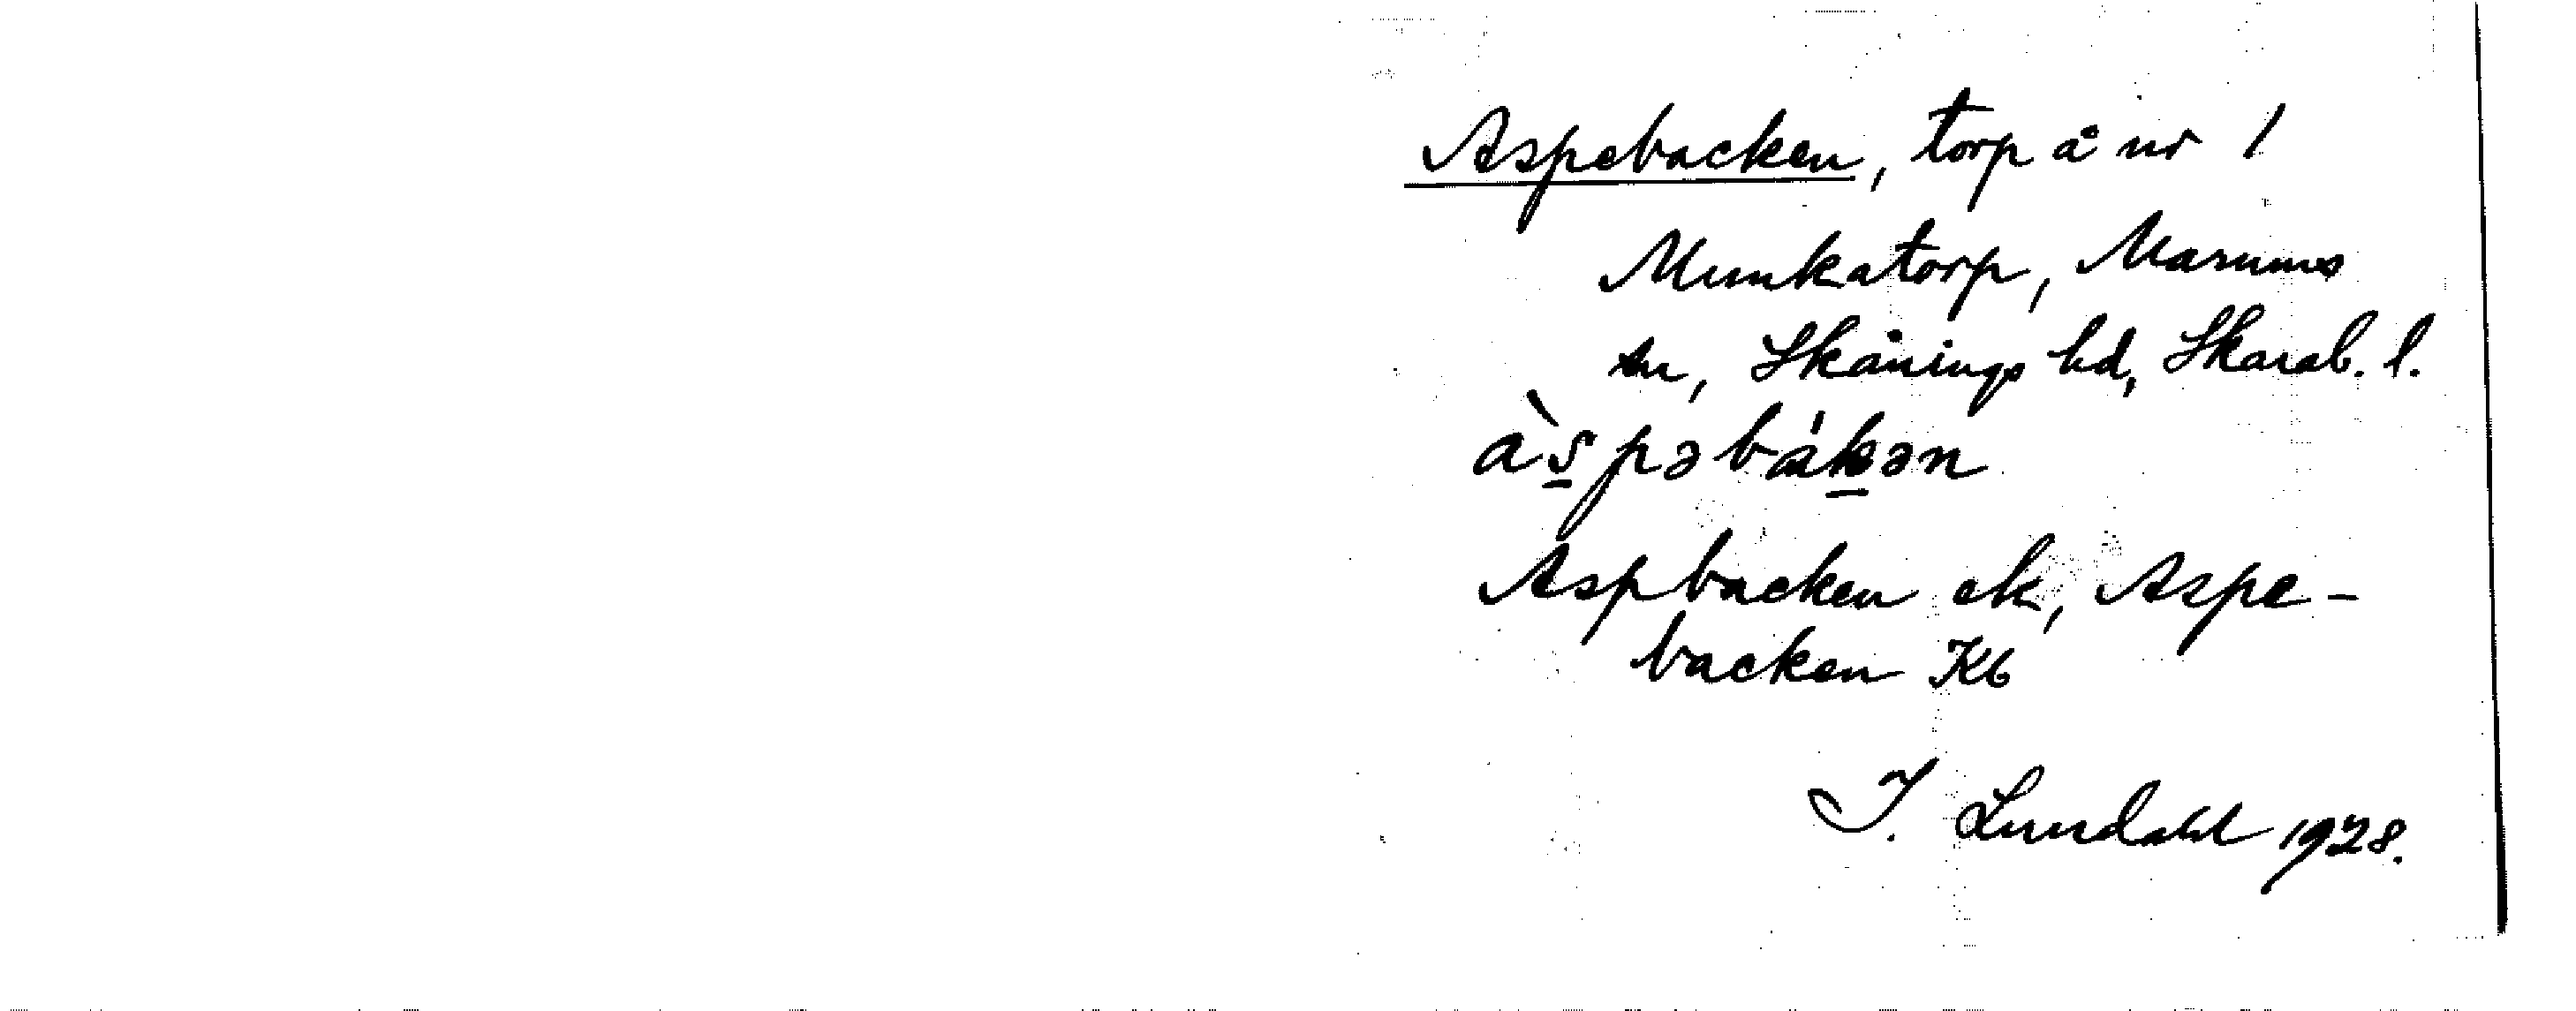 Aspebacken, torp å nr 1
Munkatorp, Marums
sn, Skånings hd, Skarab. l.
às̱pəbáḵən
Aspbacken ek, Aspe-
backen Kb
I. Lundahl 1928.